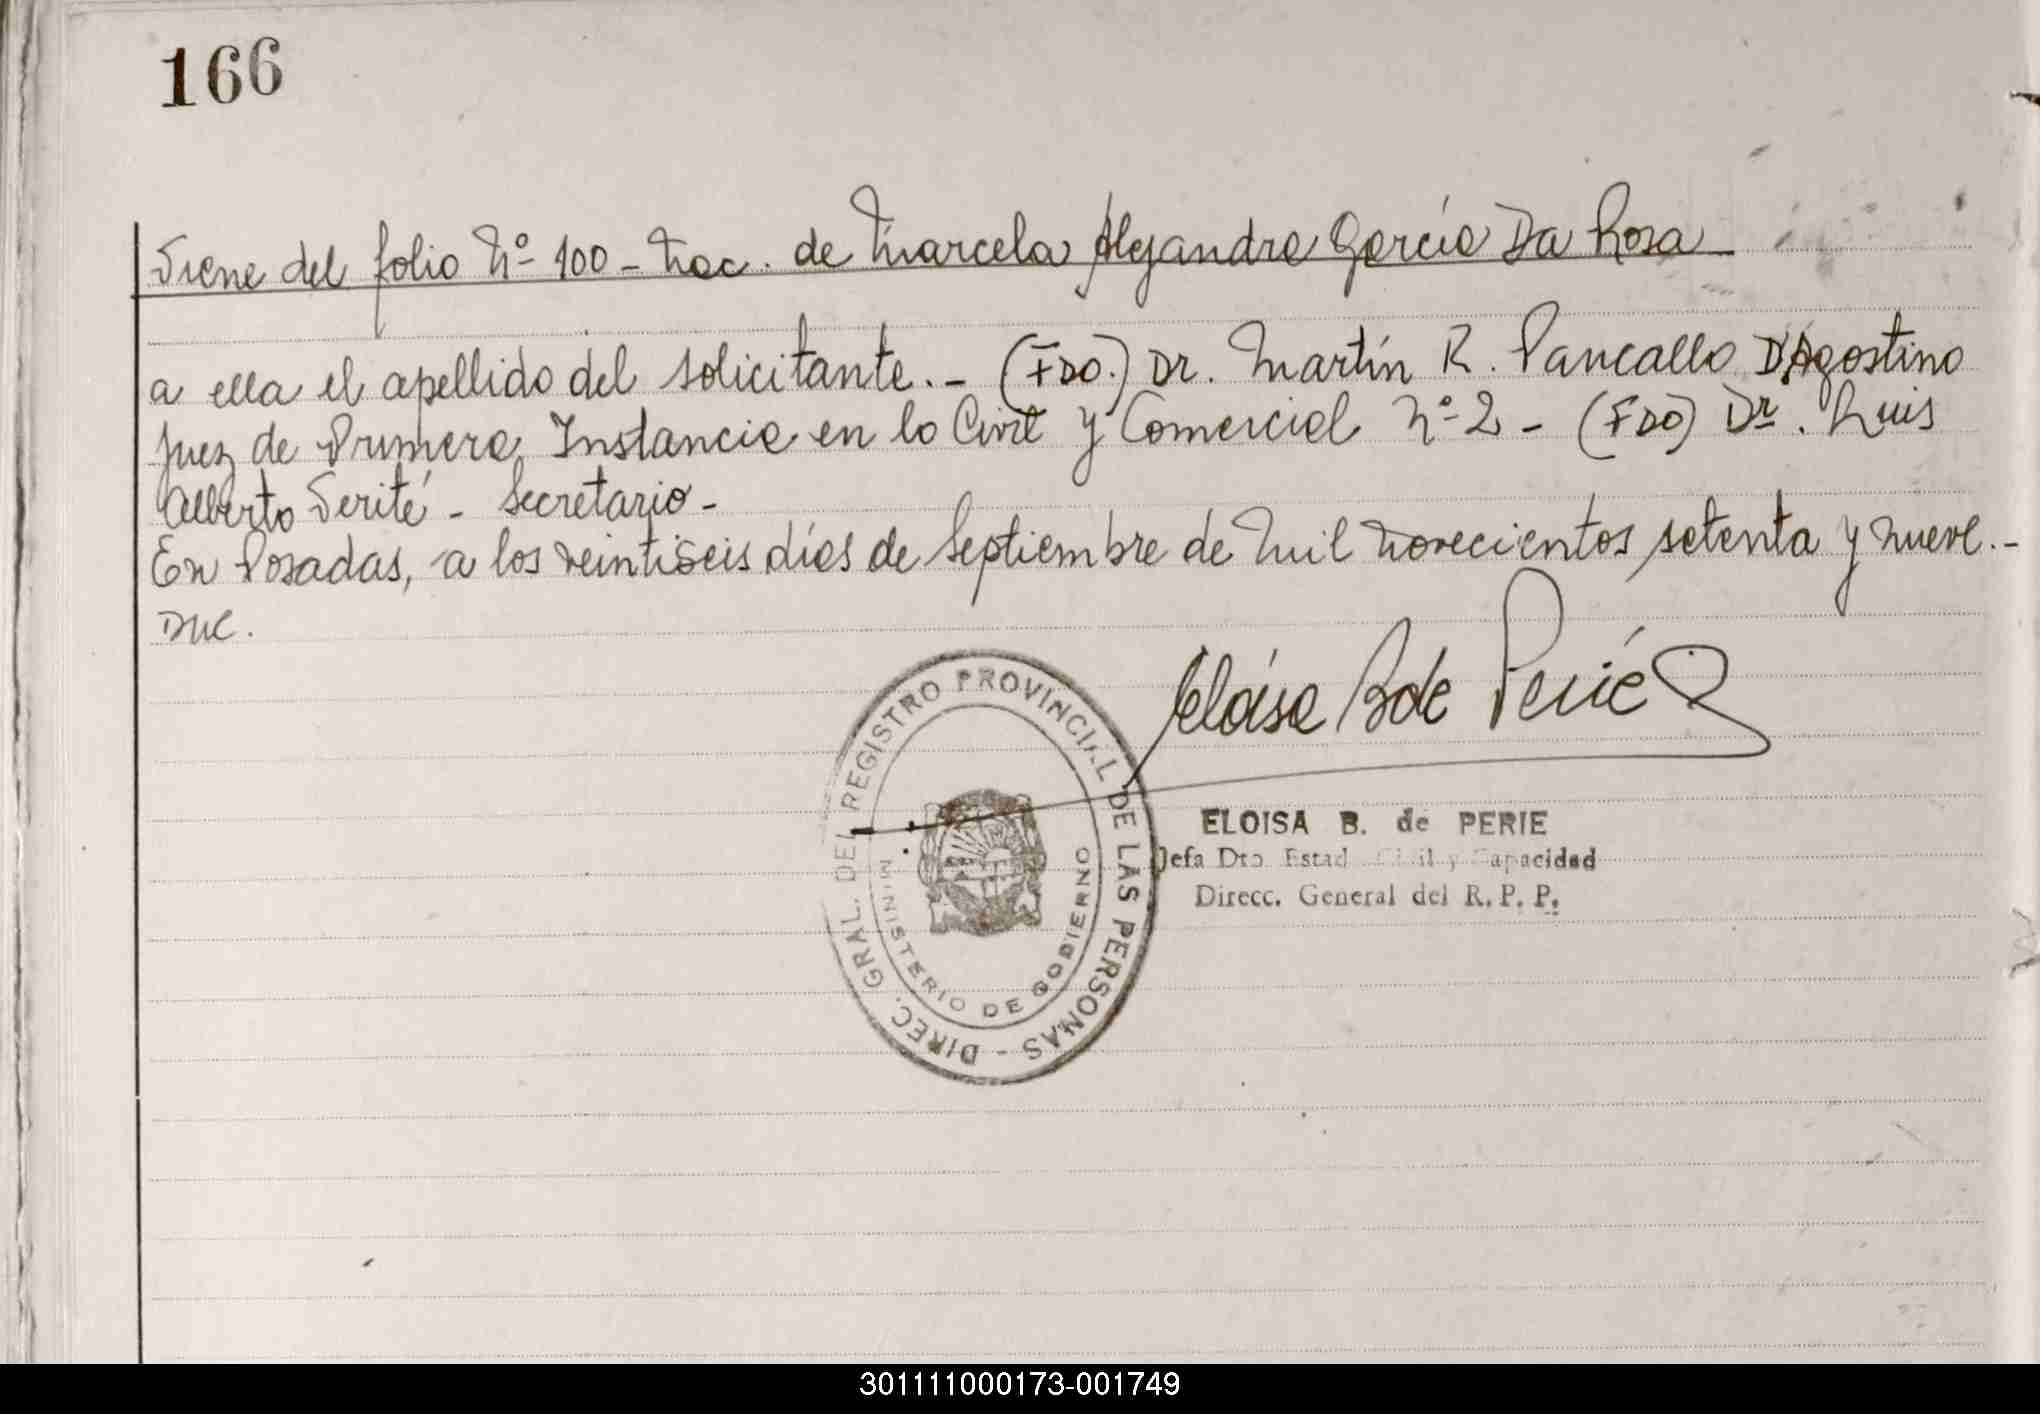 166
Viene del folio Nº 100 - Nac. de Marcela Alejandra García Da Rosa -
a ella el apellido del solicitante. - (FDO.) Dr. Martín R. Pancallo D'Agostino
Juez de Primera Instancia en lo Civil y Comercial Nº 2 - (FDO) Dr. Luis
Alberto Verité - Secretario -
En Posadas, a los veintiseis días de Septiembre de Mil novecientos setenta y nueve. -
Eloisa B de Perié
DIREC. GRAL. DEL REGISTRO PROVINCIAL DE LAS PERSONAS -
MINISTERIO DE GOBIERNO
ELOISA B. de PERIE
Jefa Dto. Estad Civil y Capacidad
Direcc. General del R. P. P.
301111000173-001749